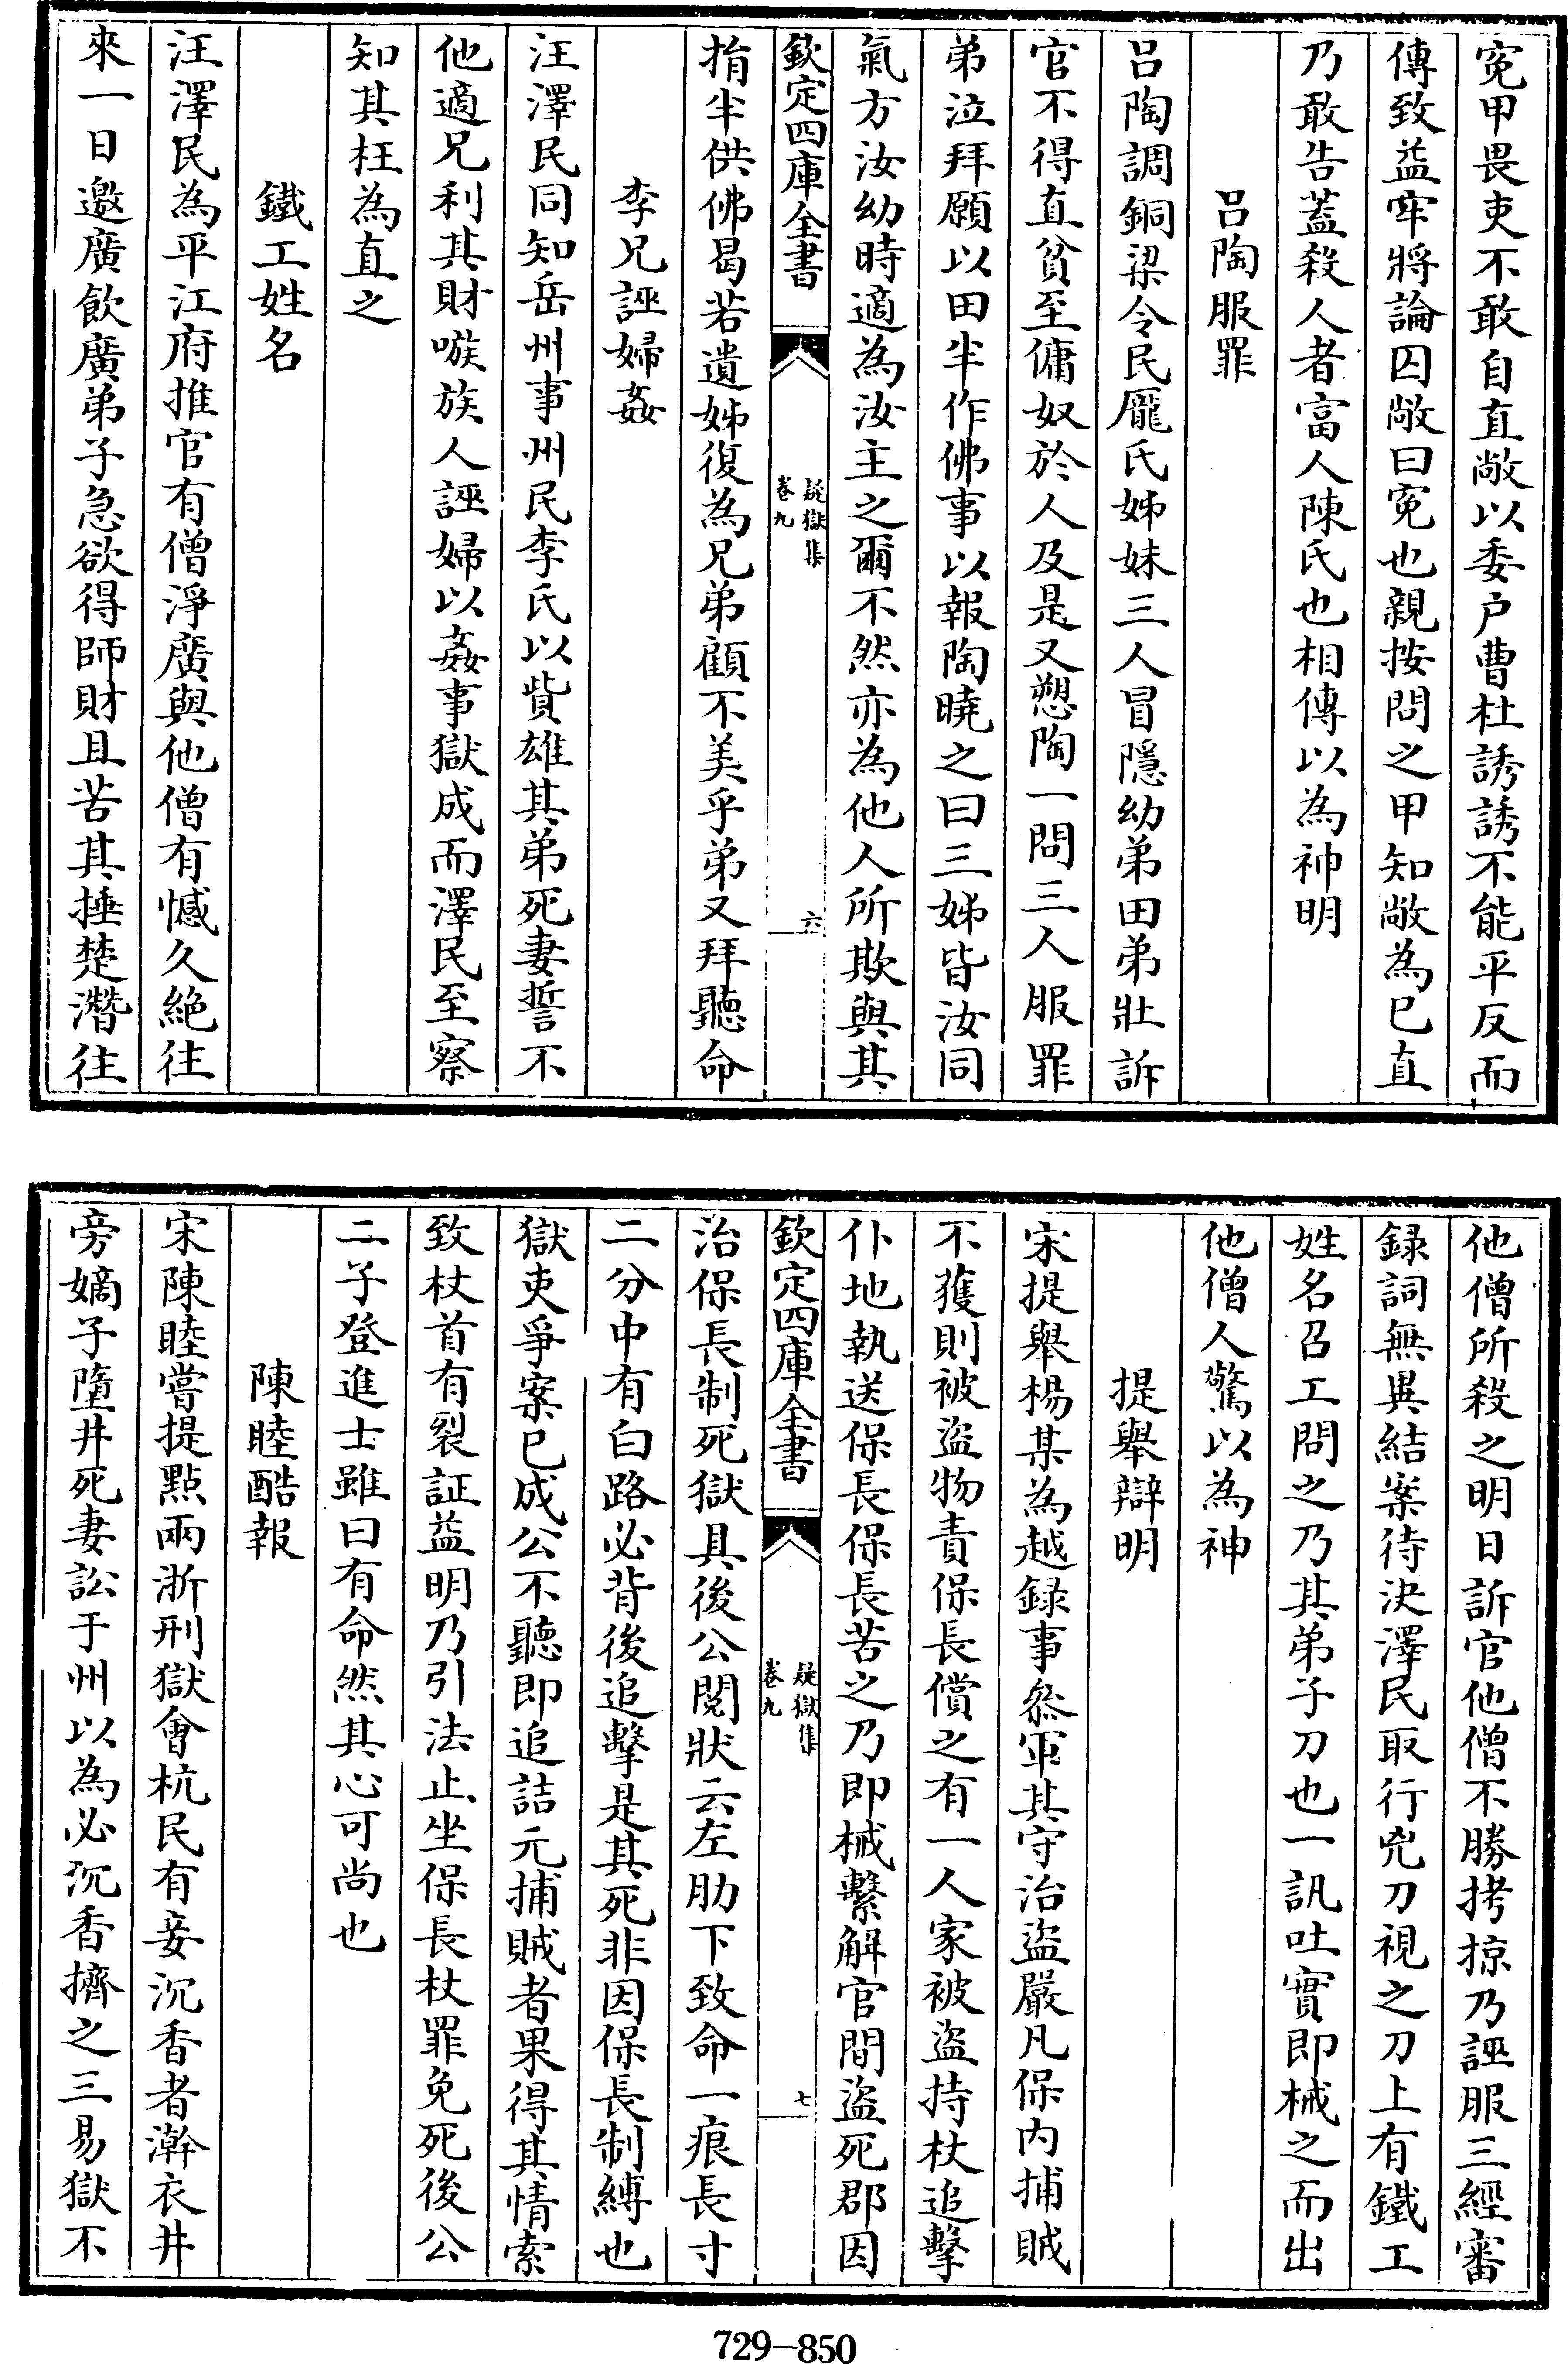 寃甲畏吏不敢自直敞以委户曹杜誘誘不能平反而
傳致益牢將論囚敞曰寃也親按問之甲知敞為已直
乃敢告蓋殺人者富人陳氏也相傳以為神明
吕陶服罪
吕陶調銅梁令民龎氏姊妹三人冒隱幼弟田弟壯訴
官不得直貧至傭奴於人及是又愬陶一問三人服罪
弟泣拜願以田半作佛事以報陶曉之曰三姊皆汝同
氣方汝幼時適為汝主之爾不然亦為他人所欺與其
欽定四庫全書
疑獄集
卷九
六
捐半供佛曷若遺姊復為兄弟顧不美乎弟又拜聽命
李兄誣婦姦
汪澤民同知岳州事州民李氏以貲雄其弟死妻誓不
他適兄利其財嗾族人誣婦以姦事獄成而澤民至察
知其枉為直之
鐵工姓名
汪澤民為平江府推官有僧淨廣與他僧有憾久絶往
來一日邀廣飲廣弟子急欲得師財且苦其捶楚濳往
他僧所殺之明日訴官他僧不勝拷掠乃誣服三經審
録詞無異結案待決澤民取行兇刀視之刀上有鐵工
姓名召工問之乃其弟子刀也一訊吐實即械之而出
他僧人驚以為神
提舉辯明
宋提舉楊某為越録事叅軍其守治盜嚴凡保内捕賊
不獲則被盜物責保長償之有一人家被盜持杖追擊
仆地執送保長保長苦之乃即械繫解官間盜死郡因
欽定四庫全書
疑獄集
卷九
七
治保長制死獄具後公閱狀云左肋下致命一痕長寸
二分中有白路必背後追擊是其死非因保長制縛也
獄吏爭案已成公不聽即追詰元捕賊者果得其情索
致杖首有裂証益明乃引法止坐保長杖罪免死後公
二子登進士雖曰有命然其心可尚也
陳睦酷報
宋陳睦嘗提點兩浙刑獄會杭民有妾沉香者澣衣井
旁嫡子墮井死妻訟于州以為必沉香擠之三易獄不
729-850